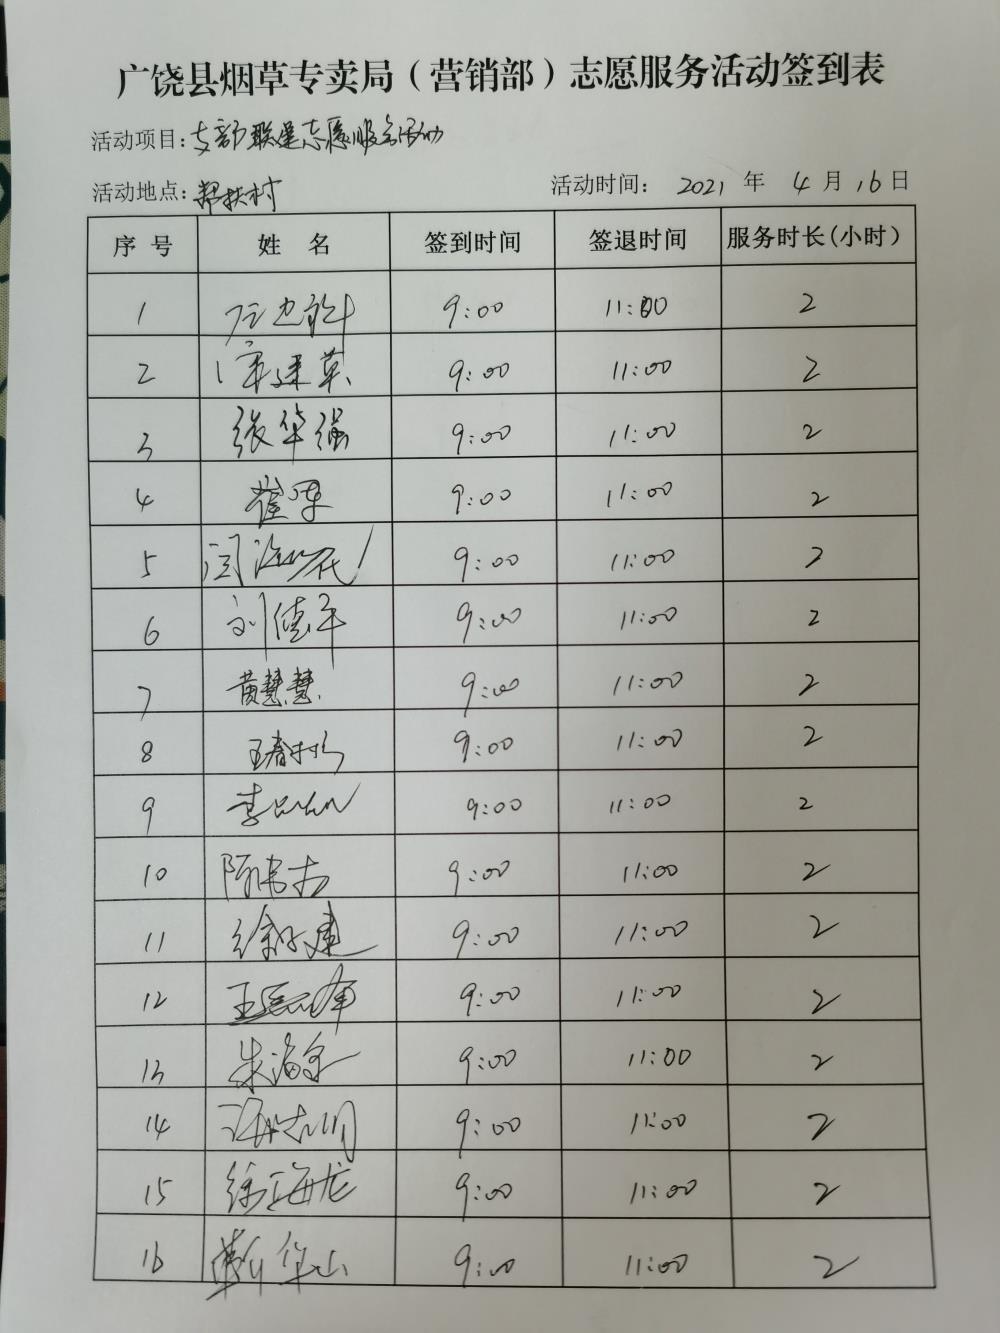 广饶县烟草专卖局（营销部）志愿服务活动签到表
活动项目：支部联建志愿服务活动
活动地点：帮扶村 活动时间： 2021 年 4 月 16 日
序 号 姓 名 签到时间 签退时间 服务时长(小时)
1 9:00 11:00 2
2 9:00 11:00 2
3 张华强 9:00 11:00 2
4 9:00 11:00 2
5 9:00 11:00 2
6 刘德平 9:00 11:00 2
7 黄慧慧 9:00 11:00 2
8 9:00 11:00 2
9 9:00 11:00 2
10 9:00 11:00 2
11 9:00 11:00 2
12 9:00 11:00 2
13 9:00 11:00 2
14 9:00 11:00 2
15 徐海龙 9:00 11:00 2
16 靳华山 9:00 11:00 2